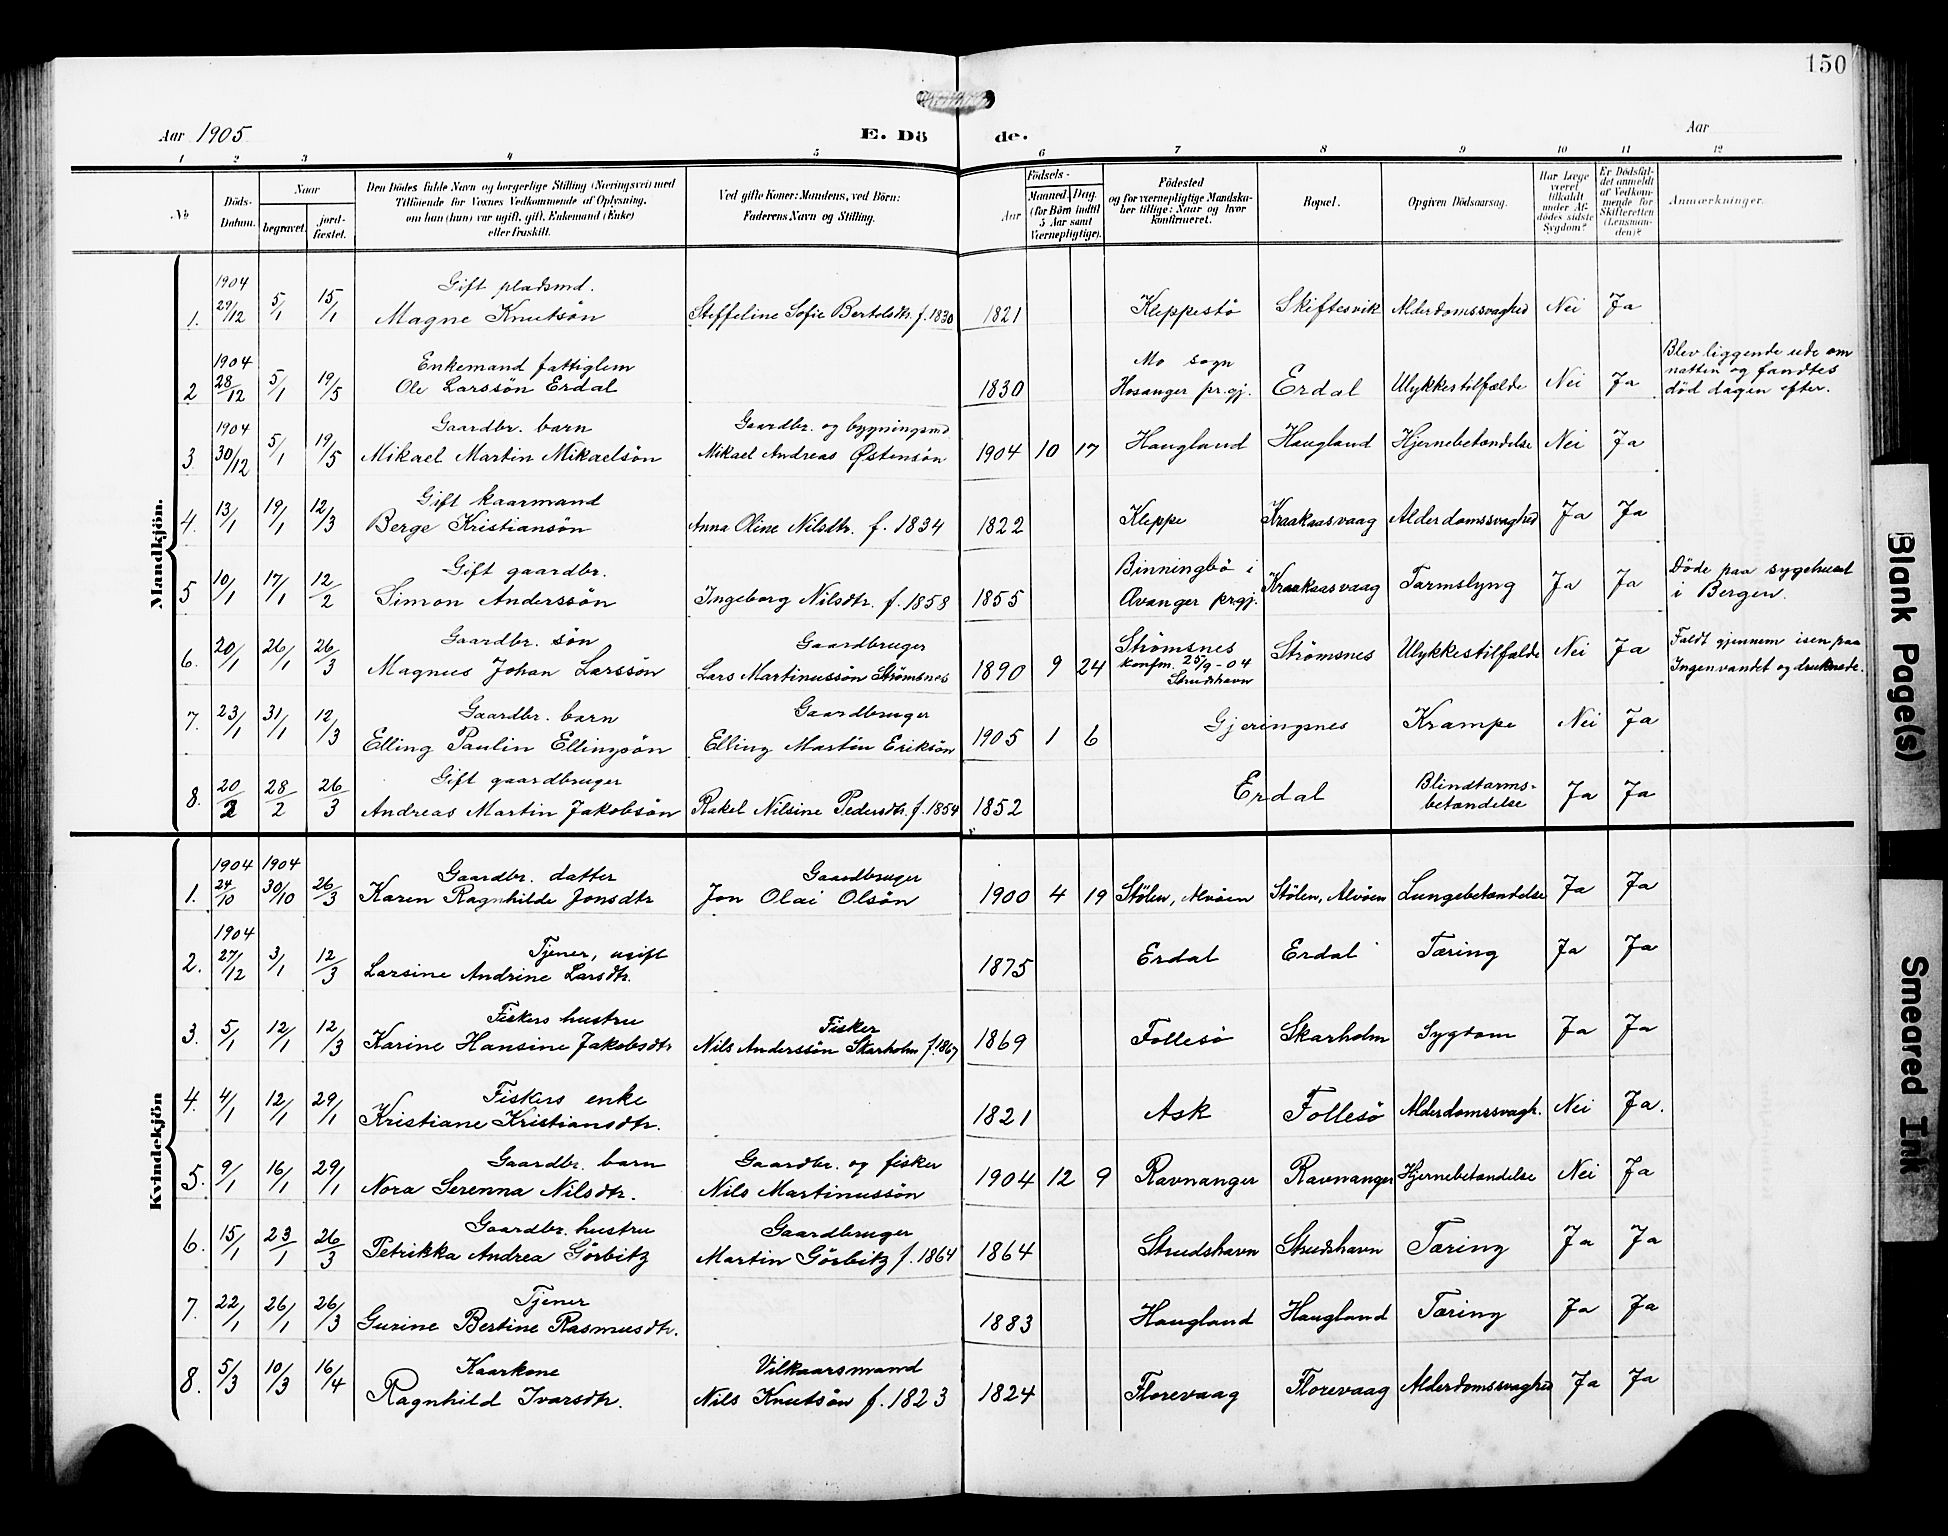 150
Aar 1905
E. Dö de.
Aar
1 2 3 4 5 6 7 8 9 10 11 12
No
Döds-Datum.
Naar
begravet.
jord-fæstet.
Den Dödes fulde Navn og borgerlige Stilling (Næringsvei) med
Tilföiende for Voxnes Vedkommende af Oplysning,
om han (hun) var ugift, gift, Enkemand (Enke)
eller fraskilt.
Ved gifte Koner: Mandens, ved Börn:
Faderens Navn og Stilling.
Födsels-
Aar
Maaned Dag.
(for Börn indtil
5 Aar samt
Værnepligtige).
Födested
og for værnepligtige Mandska-
ber tillige: Naar og hvor
konfirmeret.
Bopæl.
Opgiven Dödsaarsag.
Har Læge
været
tilkaldt
under Af-
dödes sidste
Sygdom?
Er Dödsfal-
det anmeldt
af Vedkom-
mende for
Skifteretten
(Lensman-
den)?
Anmærkninger.
Mandkjön.
1904 Gift pladsmd.
1. 29/12 5/1 15/1 Magne Knutsön Steffeline Sofie Bertelsdtr. f. 1830 1821 Kleppestö Skiftesvik Alderdomssvaghed Nei Ja
1904 Enkemand fattiglem Mo sogn Blev liggende ude om
2 28/12 5/1 19/5 Ole Larssön Erdal 1830 Hosanger pr.gj. Erdal Ulykkestilfælde Nei Ja natten og fandtes
död dagen efter.
1904 Gaardbr. barn Gaardbr. og bygningsmd
3 30/12 5/1 19/5 Mikael Martin Mikaelsön Mikael Andreas Østensön 1904 10 17 Haugland Haugland Hjernebetændelse Nei Ja
Gift kaarmand
4. 13/1 19/1 12/3 Berge Kristiansön Anna Oline Nilsdtr. f. 1834 1822 Kleppe Kraakaasvaag Alderdomssvaghed Ja Ja
Gift gaardbr. Binningbö i Döde paa sygehuset
5 10/1 17/1 12/2 Simon Anderssön Ingeborg Nilsdtr. f. 1858 1855 Avanger prgj. Kraakaasvaag Tarmslyng Ja Ja i Bergen.
Gaardbr. sön Gaardbruger Strømsnes Faldt gjennem isen paa
6. 20/1 26/1 26/3 Magnus Johan Larssön Lars Martinussön Strømsnes 1890 9 24 konfm. 25/9-04 Strømsnes Ulykkestilfælde Nei Ja Ingenvandet og druknede.
Strudshavn
Gaardbr. barn Gaardbruger
7. 23/1 31/1 12/3 Elling Paulin Ellingsön Elling Martin Eriksön 1905 1 6 Gjeringsnes Krampe Nei Ja
Gift gaardbruger Blindtarms-
8. 20/2 28/2 26/3 Andreas Martin Jakobsön Rakel Nilsine Pedersdtr. f. 1854 1852 Erdal betændelse Ja Ja
Kvindekjön
1904 1904 Gaardbr. datter Gaardbruger
1. 24/10 30/10 26/3 Karen Ragnhilde Jonsdtr Jon Olai Olsön 1900 4 19 Stölen, Alvöen Stölen, Alvöen Lungebetændelse Ja Ja
1904 Tjener, ugift
2. 27/12 3/1 12/3 Larsine Andrine Larsdtr. 1875 Erdal Erdal Tæring Ja Ja
Fiskers hustru Fisker
3. 5/1 12/1 12/3 Karine Hansine Jakobsdtr Nils Anderssön Skarholm f. 1867 1869 Follesö Skarholm Sygdom Ja Ja
Fiskers enke
4. 4/1 12/1 29/1 Kristiane Kristiansdtr. 1821 Ask Follesö Alderdomssvagh. Nei Ja.
Gaardbr. barn Gaardbr. og fisker
5. 9/1 16/1 29/1 Nora Serenna Nilsdtr. Nils Martinussön 1904 12 9 Ravnanger Ravnanger Hjernebetændelse Nei Ja
Gaardbr. hustru Gaardbruger
6. 15/1 23/1 26/3 Petrikka Andrea Görbitz Martin Görbitz f. 1864 1864 Strudshavn Strudshavn Tæring Ja Ja
Tjener
7. 22/1 26/1 26/3 Gurine Bertine Rasmusdtr. 1883 Haugland Haugland Tæring Ja Ja
Kaarkone Vilkaarsmand
8. 5/3 10/3 16/4 Ragnhild Ivarsdtr. Nils Knutsön f. 1823 1824 Florevaag Florevaag Alderdomssvaghed Ja Ja
Blank Page(s)
Smeared Ink